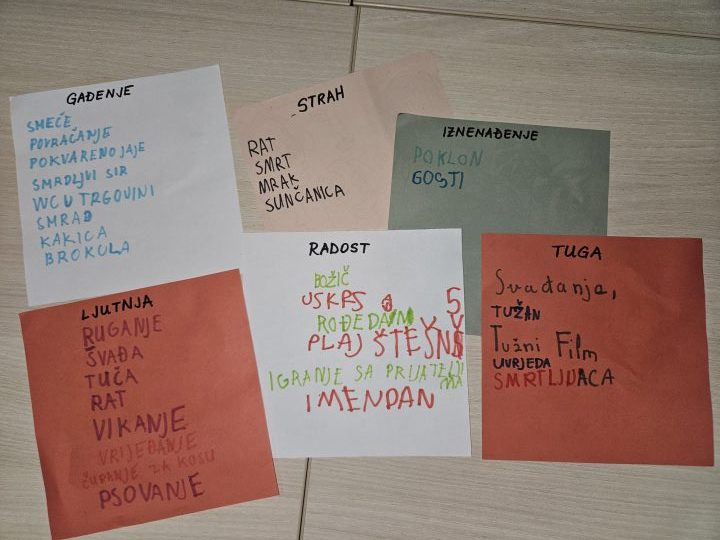 GAĐENJE
SMEČE
POVRAČANJE
POKVARENO JAJE
SMRDLJVI SIR
WC U TRGOVINI
SMRAD
KAKICA
BROKULA
STRAH
RAT
SMRT
MRAK
SUNČANICA
IZNENAĐENJE
POKLON
GOSTI
LJUTNJA
RUGANJE
ŠVAĐA
TUČA
RAT
VIKANJE
VRIJEĐANJE
ČUPANJE ZA KOSU
PSOVANJE
RADOST
BOŽIČ
USKRS 5
ROĐEDAN
PLAJ ŠTEŠN
IGRANJE SA PRIJATELJI MA
IMENDAN
TUGA
Svađanja,
TUŽAN
Tužni Film
UVRJEDA
SMRTLJUACA